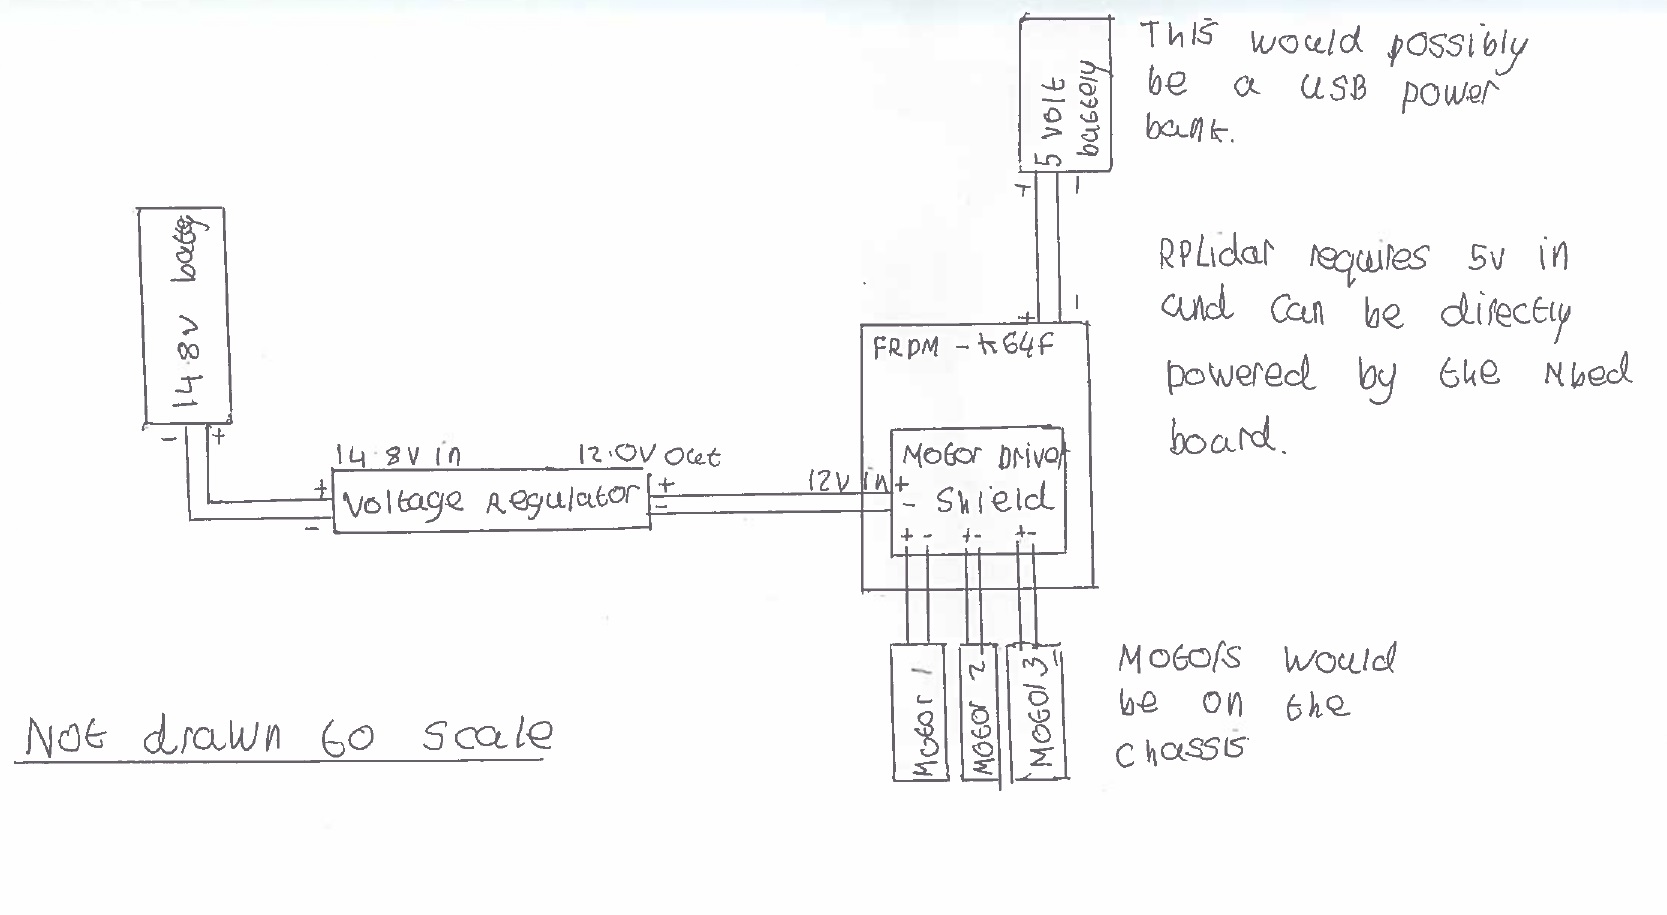 This would possibly
be a USB power
bank.
5 volt
battery
+ -
14.8V batty
- +
RPLidar requires 5v in
and can be directly
powered by the Mbed
board.
+ -
FRDM - K64F
14.8V in 12.0V out
+ Voltage Regulator +
- -
12V in +
-
Motor Driver
Shield
+ - + - + -
Motor 1
Motor 2
Motor 3
Motors would
be on the
chassis
Not drawn to scale